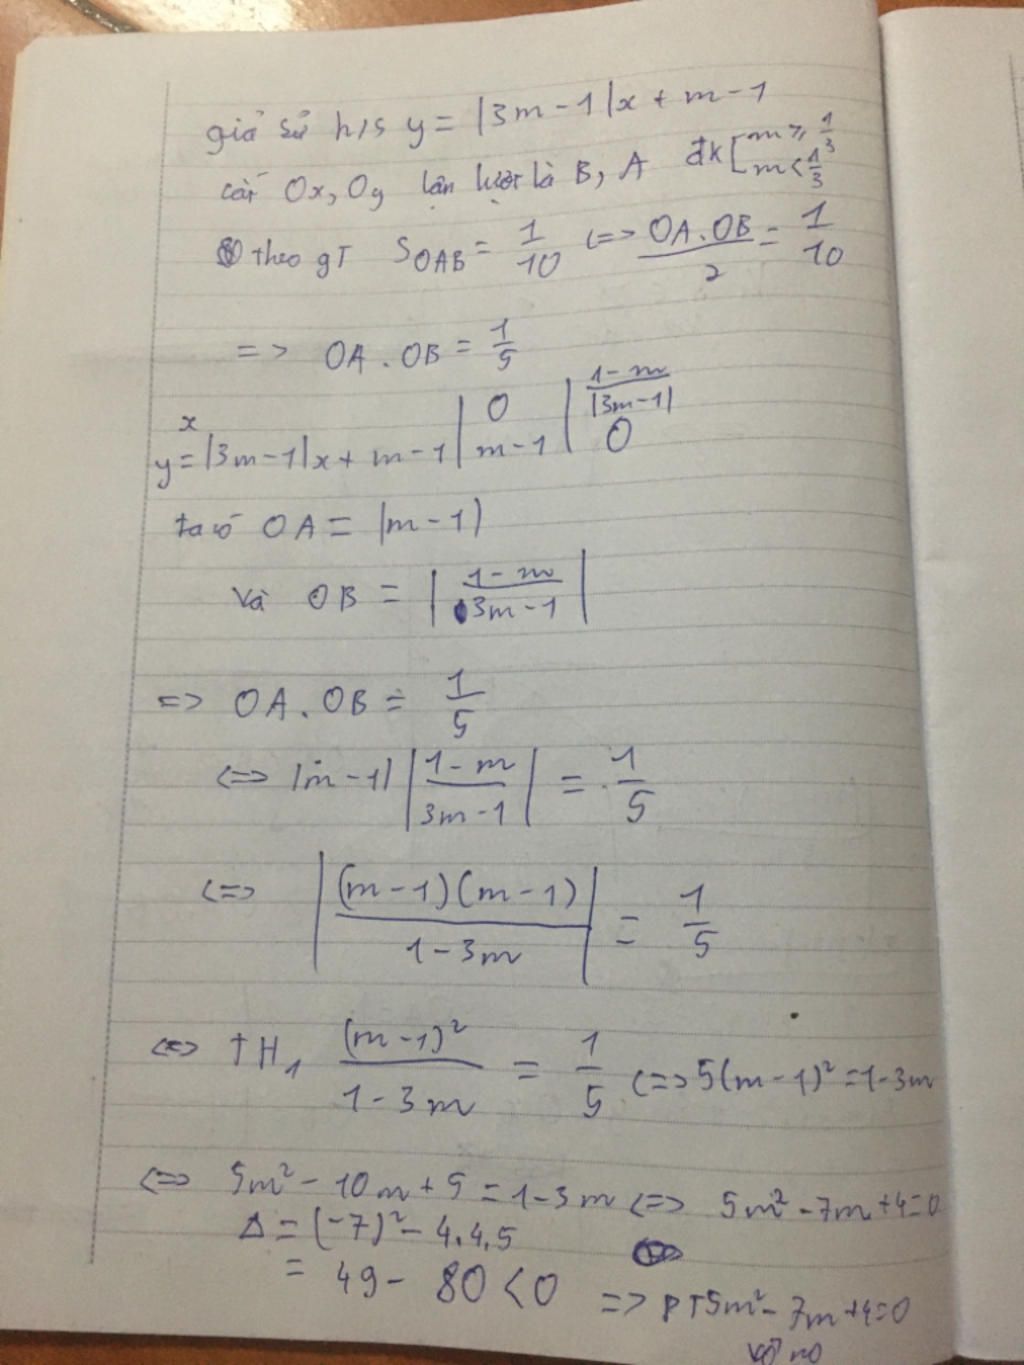 giả sử h/s y = |3m-1|x + m-1
cắt Ox, Oy lần lượt là B, A đk [m ≥ 1/3
m < 1/3
theo gT S_OAB = 1/10 <=> OA.OB/2 = 1/10
=> OA.OB = 1/5
x | 0 | 1-m/|3m-1|
y = |3m-1|x + m-1 | m-1 | 0
ta có OA = |m-1|
và OB = |1-m/3m-1|
=> OA.OB = 1/5
<=> |m-1| |1-m/3m-1| = 1/5
<=> |(m-1)(m-1)/1-3m| = 1/5
<=> TH₁ (m-1)²/1-3m = 1/5 <=> 5(m-1)² = 1-3m
<=> 5m² - 10m + 5 = 1-3m <=> 5m² - 7m + 4 = 0
Δ = (-7)² - 4.4.5
= 49 - 80 < 0 => PT 5m² - 7m + 4 = 0
vô no